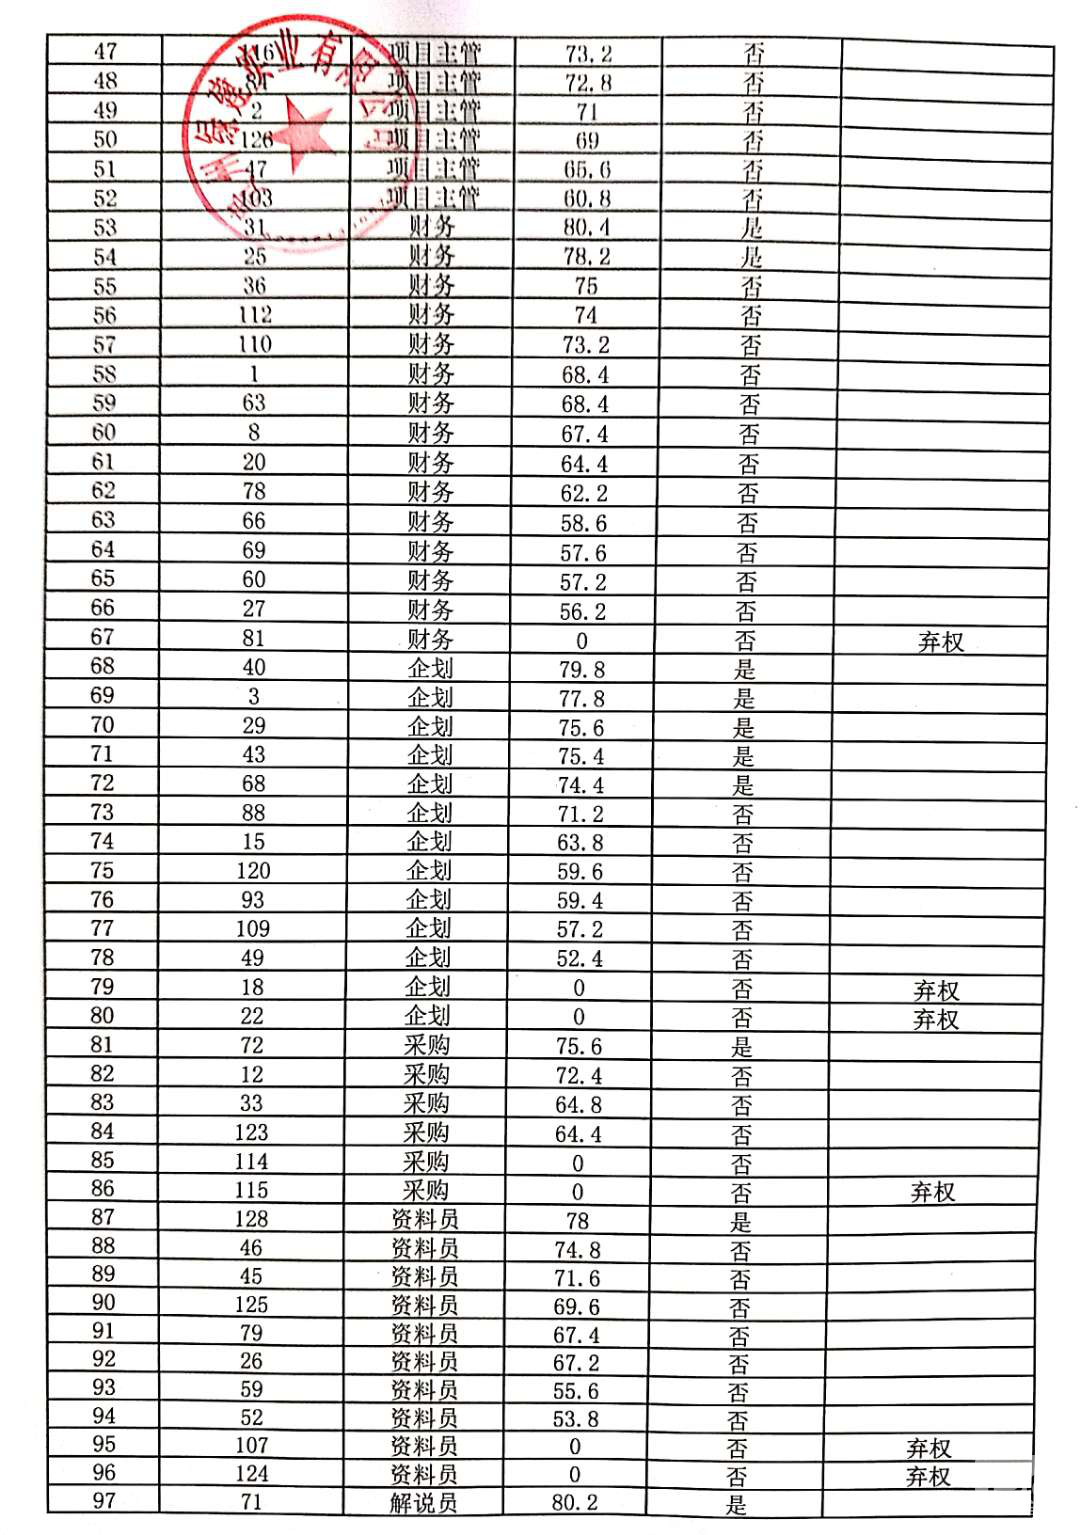 47 116 项目主管 73.2 否
48 84 项目主管 72.8 否
49 2 项目主管 71 否
50 126 项目主管 69 否
51 47 项目主管 65.6 否
52 103 项目主管 60.8 否
53 31 财务 80.4 是
54 25 财务 78.2 是
55 36 财务 75 否
56 112 财务 74 否
57 110 财务 73.2 否
58 1 财务 68.4 否
59 63 财务 68.4 否
60 8 财务 67.4 否
61 20 财务 64.4 否
62 78 财务 62.2 否
63 66 财务 58.6 否
64 69 财务 57.6 否
65 60 财务 57.2 否
66 27 财务 56.2 否
67 81 财务 0 否 弃权
68 40 企划 79.8 是
69 3 企划 77.8 是
70 29 企划 75.6 是
71 43 企划 75.4 是
72 68 企划 74.4 是
73 88 企划 71.2 否
74 15 企划 63.8 否
75 120 企划 59.6 否
76 93 企划 59.4 否
77 109 企划 57.2 否
78 49 企划 52.4 否
79 18 企划 0 否 弃权
80 22 企划 0 否 弃权
81 72 采购 75.6 是
82 12 采购 72.4 否
83 33 采购 64.8 否
84 123 采购 64.4 否
85 114 采购 0 否
86 115 采购 0 否 弃权
87 128 资料员 78 是
88 46 资料员 74.8 否
89 45 资料员 71.6 否
90 125 资料员 69.6 否
91 79 资料员 67.4 否
92 26 资料员 67.2 否
93 59 资料员 55.6 否
94 52 资料员 53.8 否
95 107 资料员 0 否 弃权
96 124 资料员 0 否 弃权
97 71 解说员 80.2 是